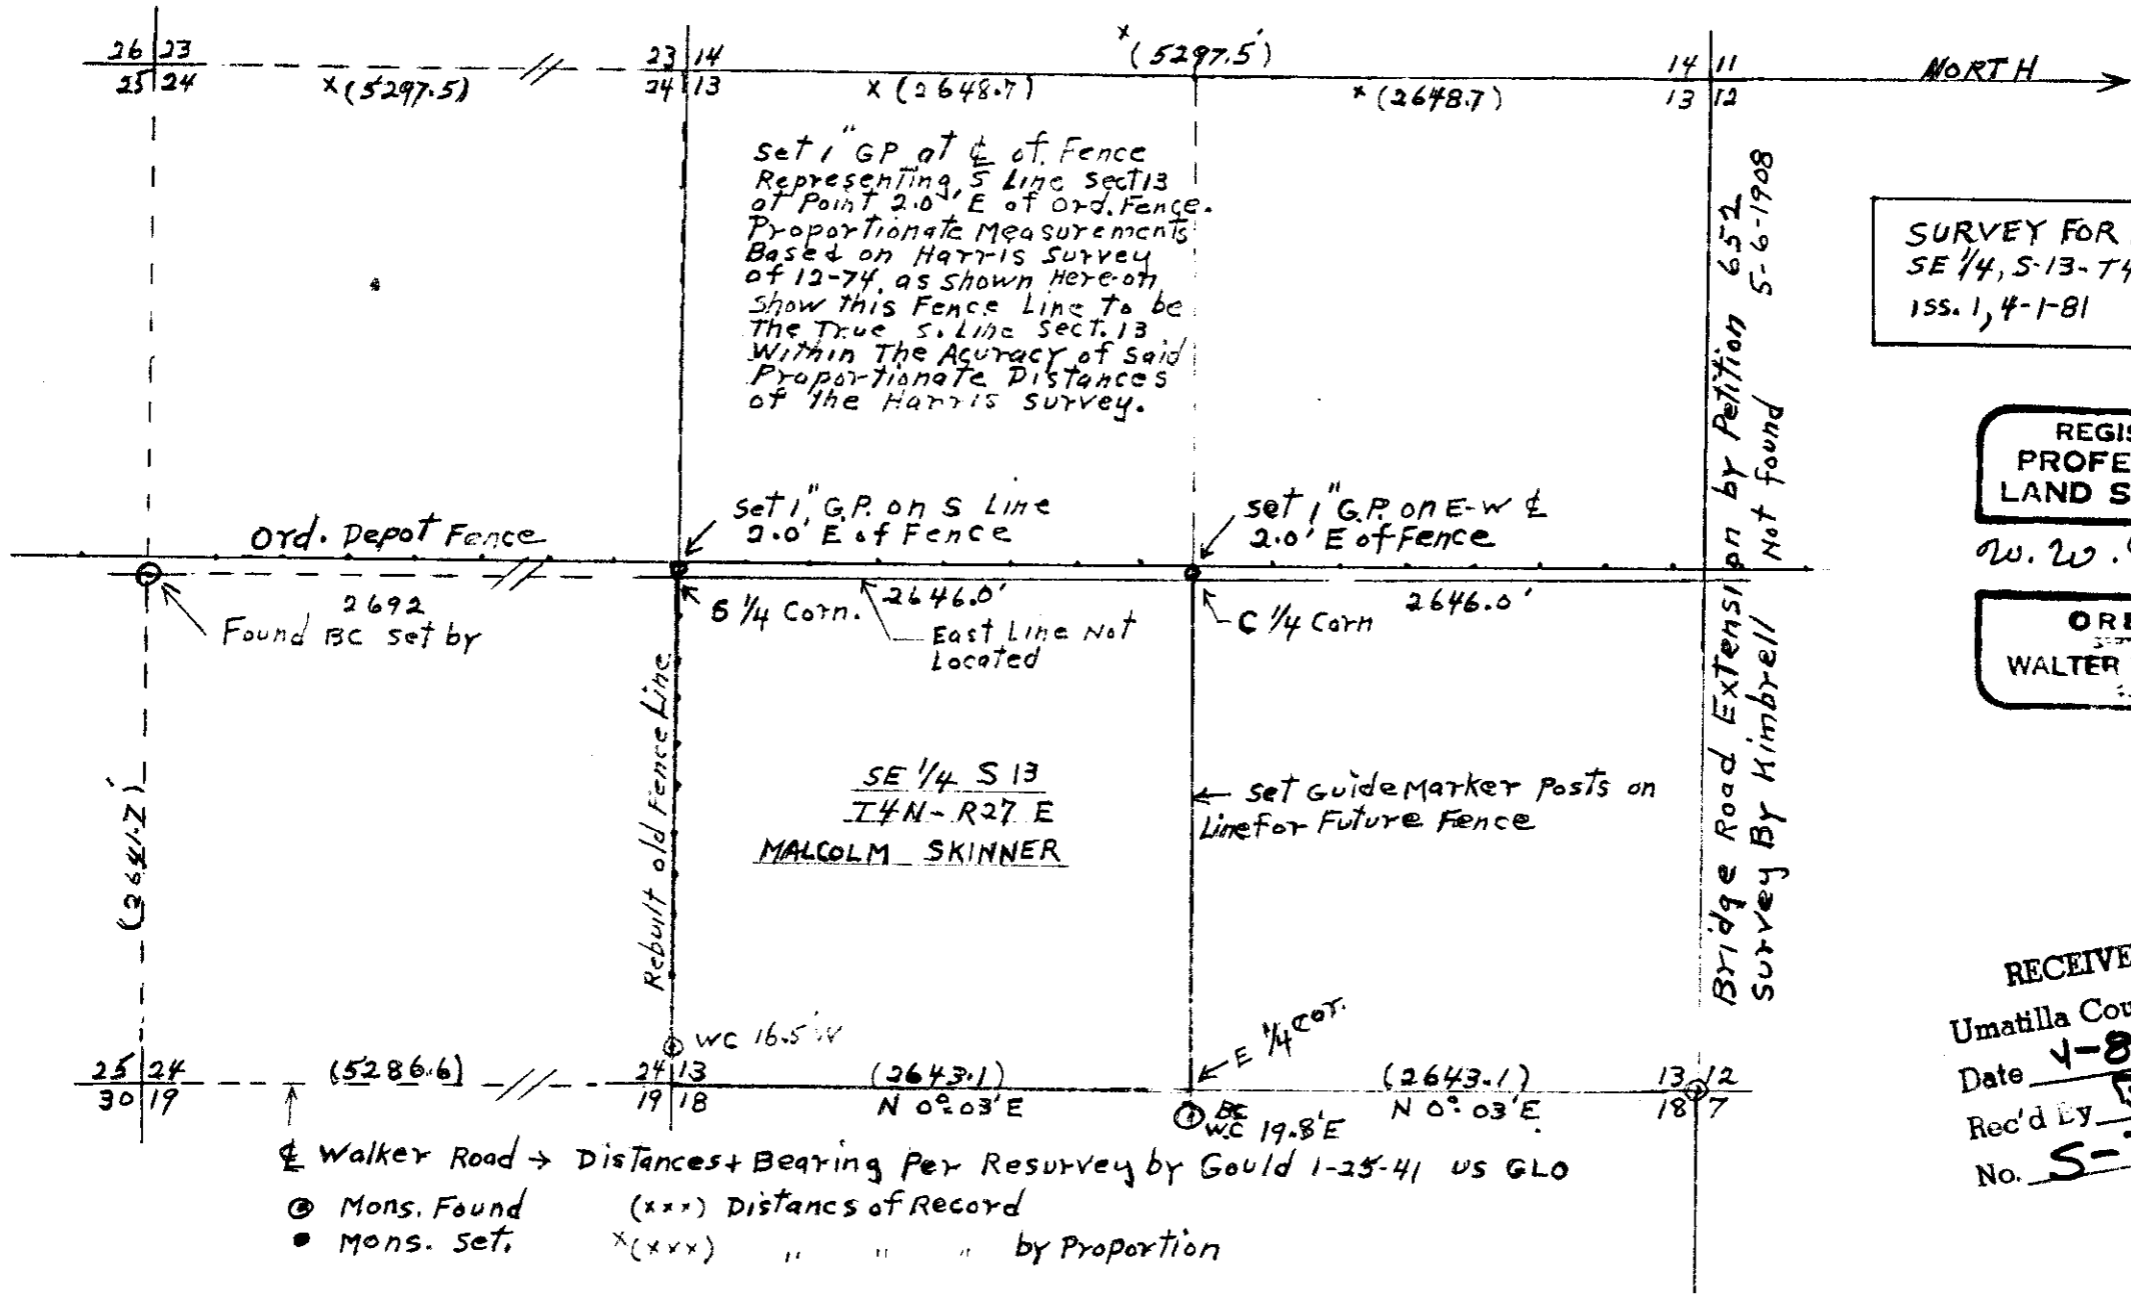 26 | 23
25 | 24
x(5297.5)
23 | 14
24 | 13
x (2648.7)
x (5297.5')
x (2648.7)
14 | 11
13 | 12
NORTH
set 1" GP at ℄ of Fence
Representing S Line Sect 13
at Point 2.0' E of Ord. Fence.
Proportionate Measurements
Based on Harris Survey
of 12-74, as shown Here-on
Show this Fence Line To be
The True S. Line Sect. 13
Within The Acuracy of Said
Proportionate Distances
of the Harris survey.
SURVEY FOR
SE 1/4, S-13-T4
iss. 1, 4-1-81
REGIS
PROFE
LAND S
W. W.
ORE
WALTER
Bridge Road Extension by Petition 652
Survey By Kimbrell Not found 5-6-1908
Ord. Depot Fence
set 1" G.P. on S Line
2.0' E of Fence
set 1" G.P. on E-W ℄
2.0' E of Fence
2692
Found BC set by
S 1/4 Corn.
2646.0'
East Line Not
Located
C 1/4 Corn
2646.0'
(2641.2)'
Rebuilt old Fence Line
SE 1/4 S 13
T4N - R27 E
MALCOLM SKINNER
set Guide Marker Posts on
Line for Future Fence
WC 16.5' W
E 1/4 Cor.
25 | 24
30 | 19
(5286.6)
24 | 13
19 | 18
(2643.1)
N 0°.03' E
BC
W.C 19.8' E
(2643.1)
N 0°.03' E.
13 | 12
18 | 7
RECEIVE
Umatilla Cou
Date 4-8
Rec'd By
No. S-
℄ Walker Road → Distances + Bearing Per Resurvey by Gould 1-25-41 US GLO
Mons. Found (xxx) Distancs of Record
Mons. Set. x(xxx) " " " by Proportion